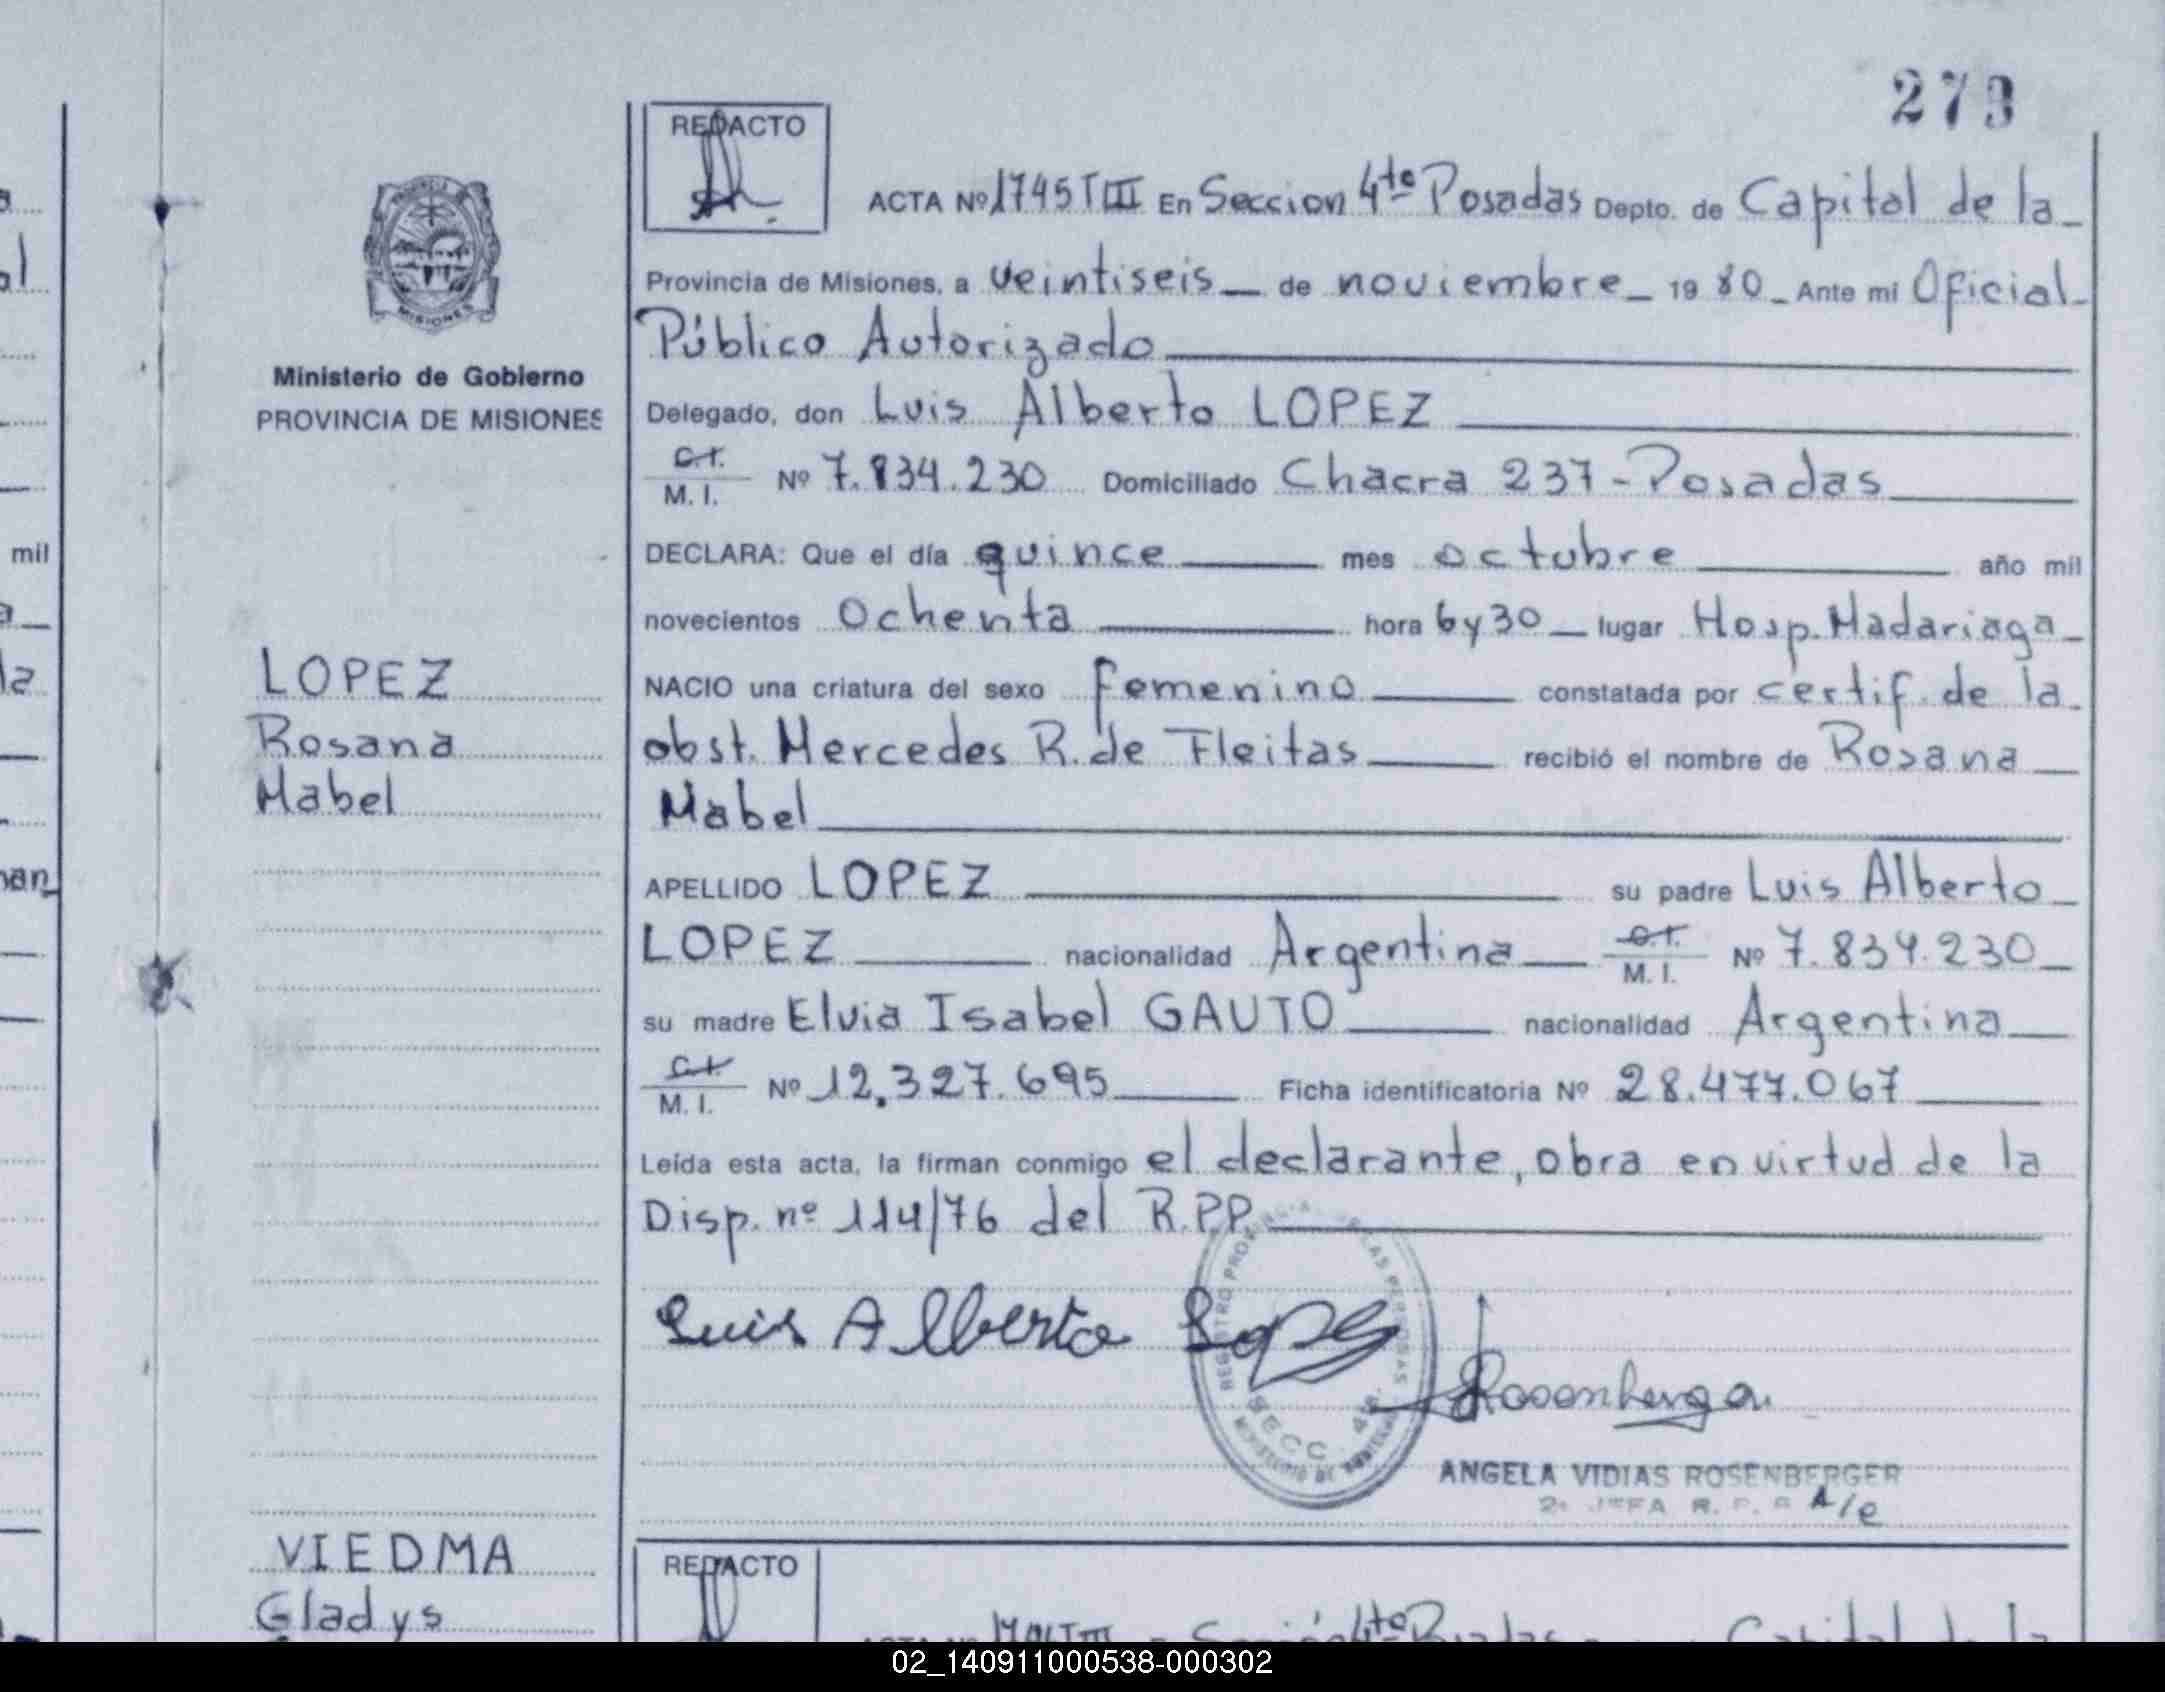 273
REDACTO
ACTA Nº 1745 T III En Seccion 4ta Posadas Depto. de Capital de la
Provincia de Misiones, a veintiseis de noviembre 1980 Ante mi Oficial
Público Autorizado
Delegado, don Luis Alberto LOPEZ
C.I.
M. I. Nº 7.834.230 Domiciliado Chacra 237 - Posadas
DECLARA: Que el día quince mes octubre año mil
novecientos ochenta hora 6 y 30 lugar Hosp. Madariaga
NACIO una criatura del sexo femenino constatada por certif. de la
obst. Mercedes R. de Fleitas recibió el nombre de Rosana
Mabel
APELLIDO LOPEZ su padre Luis Alberto
LOPEZ nacionalidad Argentina C.I. M. I. Nº 7.834.230
su madre Elvia Isabel GAUTO nacionalidad Argentina
C.I.
M. I. Nº 12.327.695 Ficha identificatoria Nº 28.477.067
Leída esta acta, la firman conmigo el declarante, obra en virtud de la
Disp. nº 114/76 del R.P.P.
Luis Alberto Lopez
REGISTRO PROVINCIAL DE LAS PERSONAS
SECC. 4ta.
Rosenberger
ANGELA VIDIAS ROSENBERGER
2ª JEFA R. P. P. A/c
Ministerio de Gobierno
PROVINCIA DE MISIONES
MISIONES
LOPEZ
Rosana
Mabel
VIEDMA
Gladys
REDACTO
mil
02_140911000538-000302